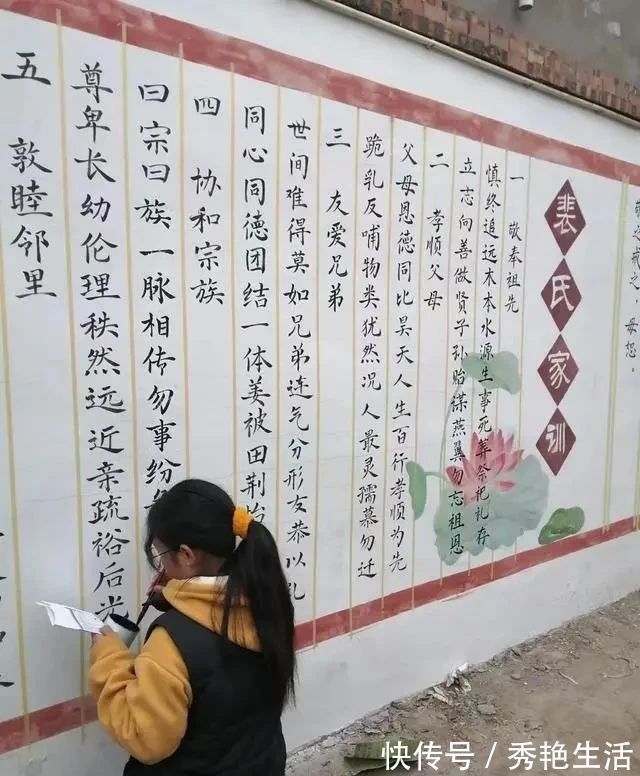 敬之戒之 毋
裴氏家训
一 敬奉祖先
慎终追远木本水源生事死葬祭祀礼存
立志向善做贤子孙贻谋燕翼勿忘祖恩
二 孝顺父母
父母恩德同比昊天人生百行孝顺为先
跪乳反哺物类犹然况人最灵孺慕勿迁
三 友爱兄弟
世间难得莫如兄弟连气分形友恭以礼
同心同德团结一体姜被田荆怡
四 协和宗族
曰宗曰族一脉相传勿事纷
尊卑长幼伦理秩然远近亲疏裕后光
五 敦睦邻里
快传号 / 秀艳生活